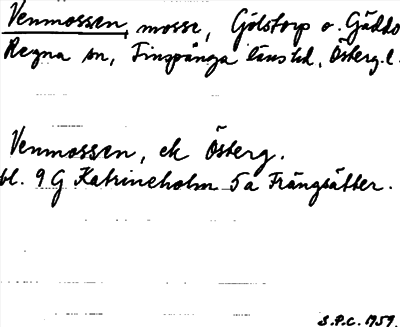 Venmossen, mosse, Gölstorp o. Gäddo
Regna sn, Finspånga läns hd, Österg. l.
Venmossen, ek Österg.
bl. 9 G Katrineholm 5a Frängsätter.
S.P.C. 1959.